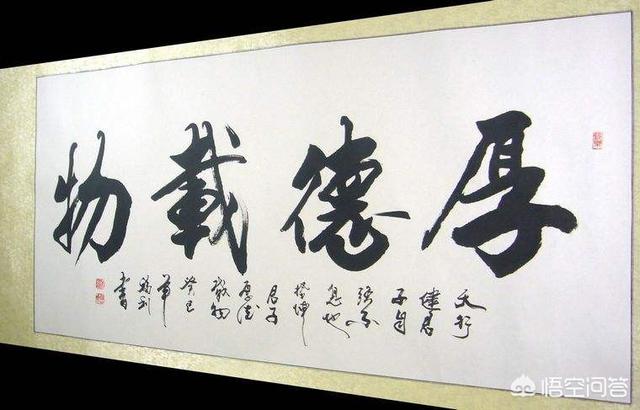 厚德載物
天行
健君
子自
强不
息地
势坤
君子
厚德
載物
癸巳
書
悟空问答